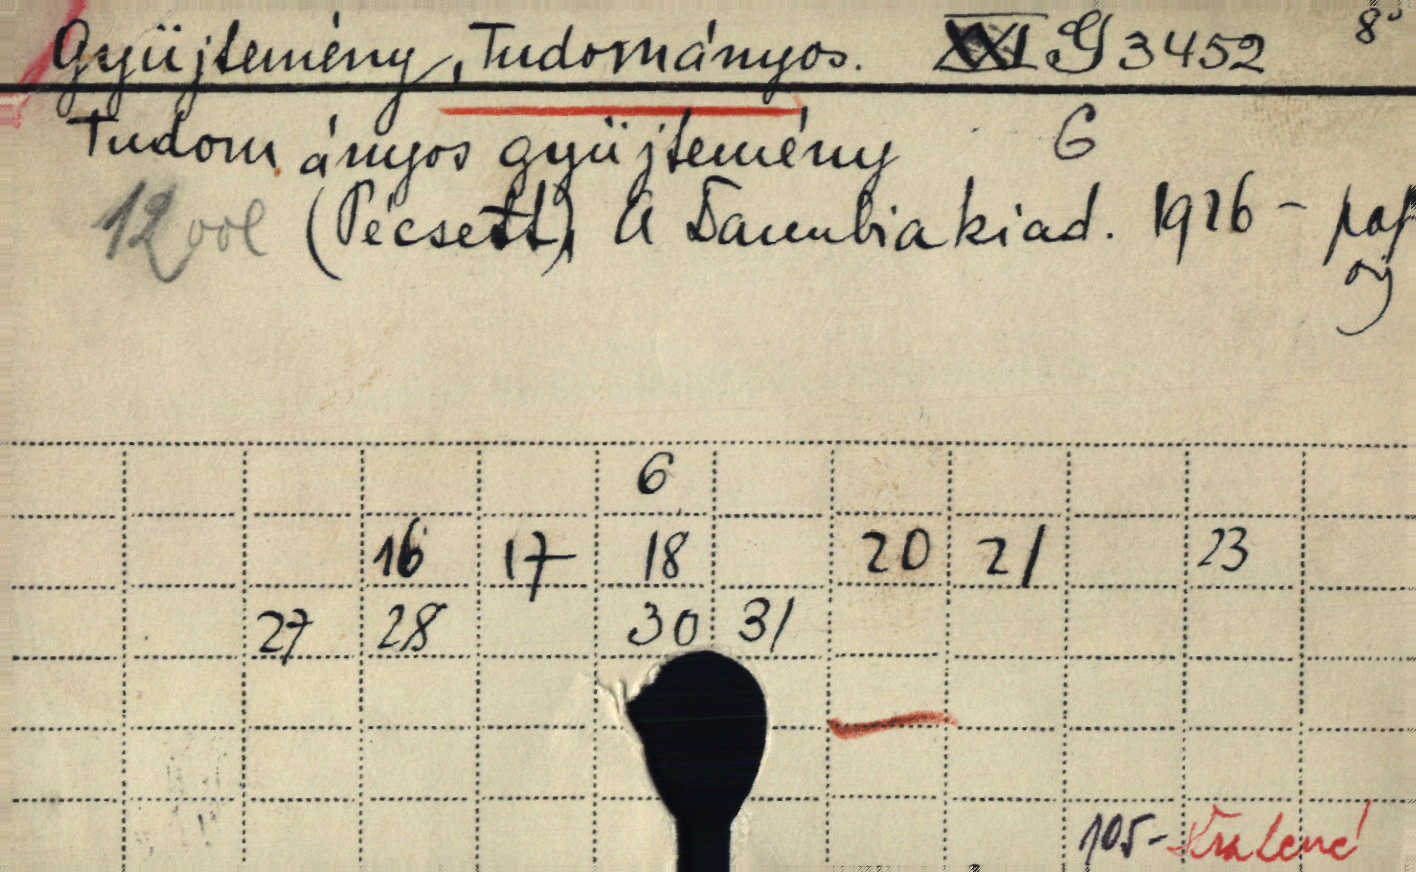 Gyüjtemény, Tudományos. XXI G 3452 8°
Tudományos gyüjtemény G
12 vol (Pécsett) A Danubia kiad. 1926 -
6
16 17 18 20 21 23
27 28 30 31
105-